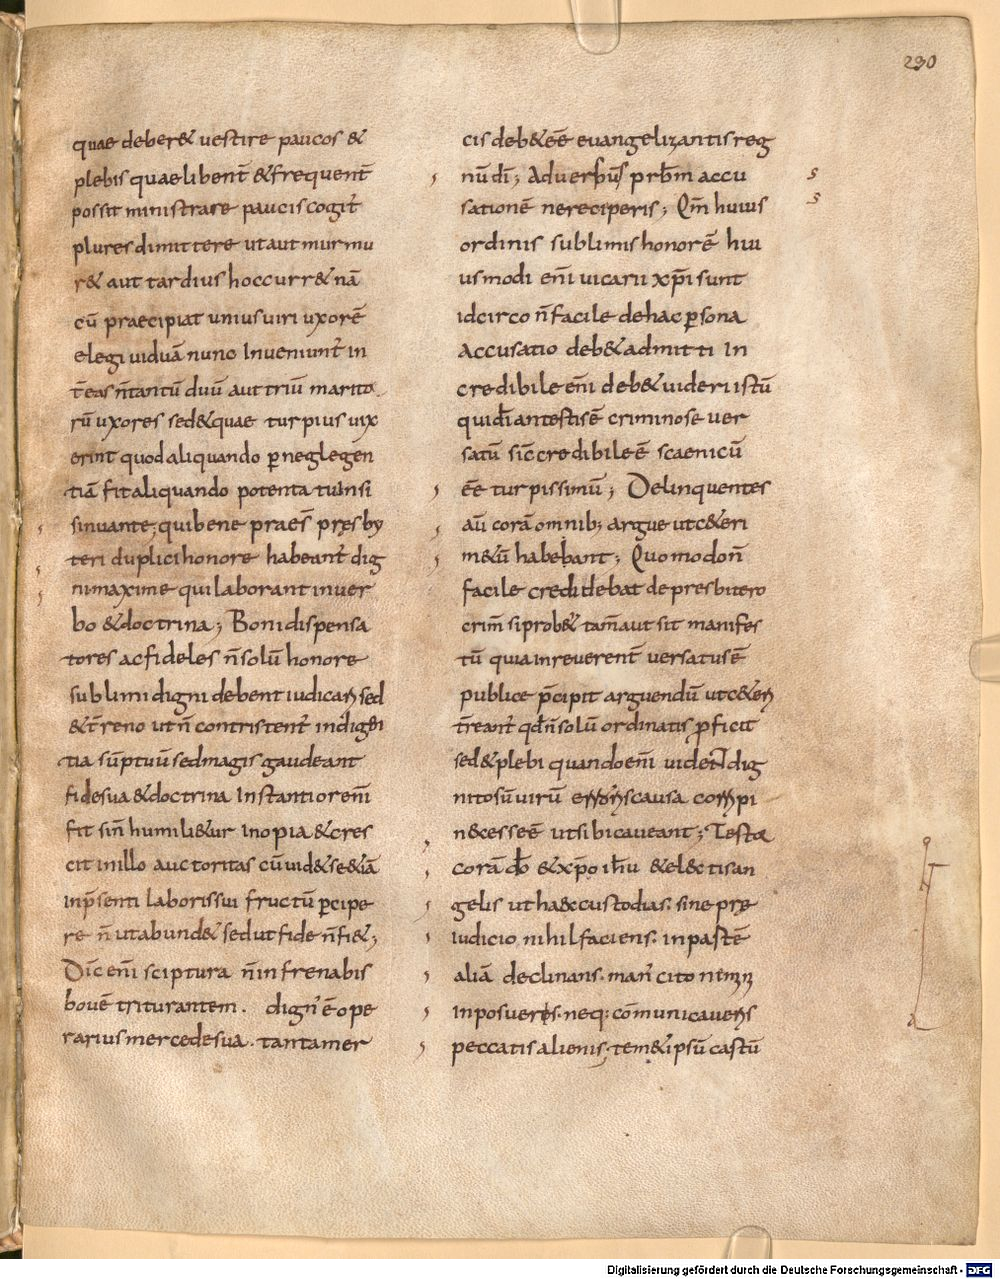 230
quae deber& uestire paucos &
plebis quae libent̄ & frequent̄
possit ministrare paucis cogit̄
plures dimittere ut aut murmu
r& aut tardius hoc curr& nā
cū praecipiat unius uiri uxorē
elegi uiduā nunc Inueniunt̄ in
t̄ eas n̄ tantū duū aut triū marito
rū uxores sed & quae turpius uix
erint quod aliquando p̱ neglegen
tiā fit aliquando potenta tu Insi
sinuante; qui bene praes̄ pręsby
teri duplici honore habeant̄ dig
ni maxime qui laborant in uer
bo & doctrina; Boni dispensa
tores ac fideles n̄ solū honore
sublimi digni debent iudicari sed
& t̄reno ut n̄ contristent̄ indigen
tia sūptuū sed magis gaudeant
fide sua & doctrina Instantior en̄i
fit sin̄ humili&ur Inopia & cres
cit in illo auctoritas cū uid& se &iā
in p̄senti laboris sui fructū p̱cipe
re n̄ ut abund& sed ut fide n̄ fi&;
Dic̄ en̄i sciptura n̄ infrenabis
bouē triturantem. dign' ē ope
rarius mercede sua. tanta mer
cis deb& eē euangelizantis reg
nū dī; Aduersus prb̄m accu
sationē ne reciperis; Qm̄ huius
ordinis sublimis honorē hui
usmodi en̄i uicarii xp̄i sunt
idcirco n̄ facile de hac p̱sona
accusatio deb& admitti In
credibile en̄i deb& uideri istū
qui dī antestis ē criminose uer
satū sic̄ credibile ē scaenicū
eē turpissimū; Delinquentes
aū corā omnib; argue ut c&eri
m&ū habeant; Quomodo n̄
facile credi debat de presbitero
crim̄ si prob& tam̄ aut sit manifes
tū quia inreuerent̄ uersatus ē
publice p̄cipit arguendū ut c&eri
t̄reant̄ qd̄ n̄ solū ordinatis p̱ficit
sed & plebi quando en̄i uident dig
nitosū uirū erroris causa corripi
necesse ē ut sibi caueant; Testor
corā dō & xp̄o ih̄u & el&ctis an
gelis ut haec custodias. sine prę
iudicio nihil faciens. in pastē
aliā declinans. man' cito nemini
inposueris. neq; cōmunicaueris
peccatis alienis; tem&ipsū castū
s
s
Digitalisierung gefördert durch die Deutsche Forschungsgemeinschaft - DFG